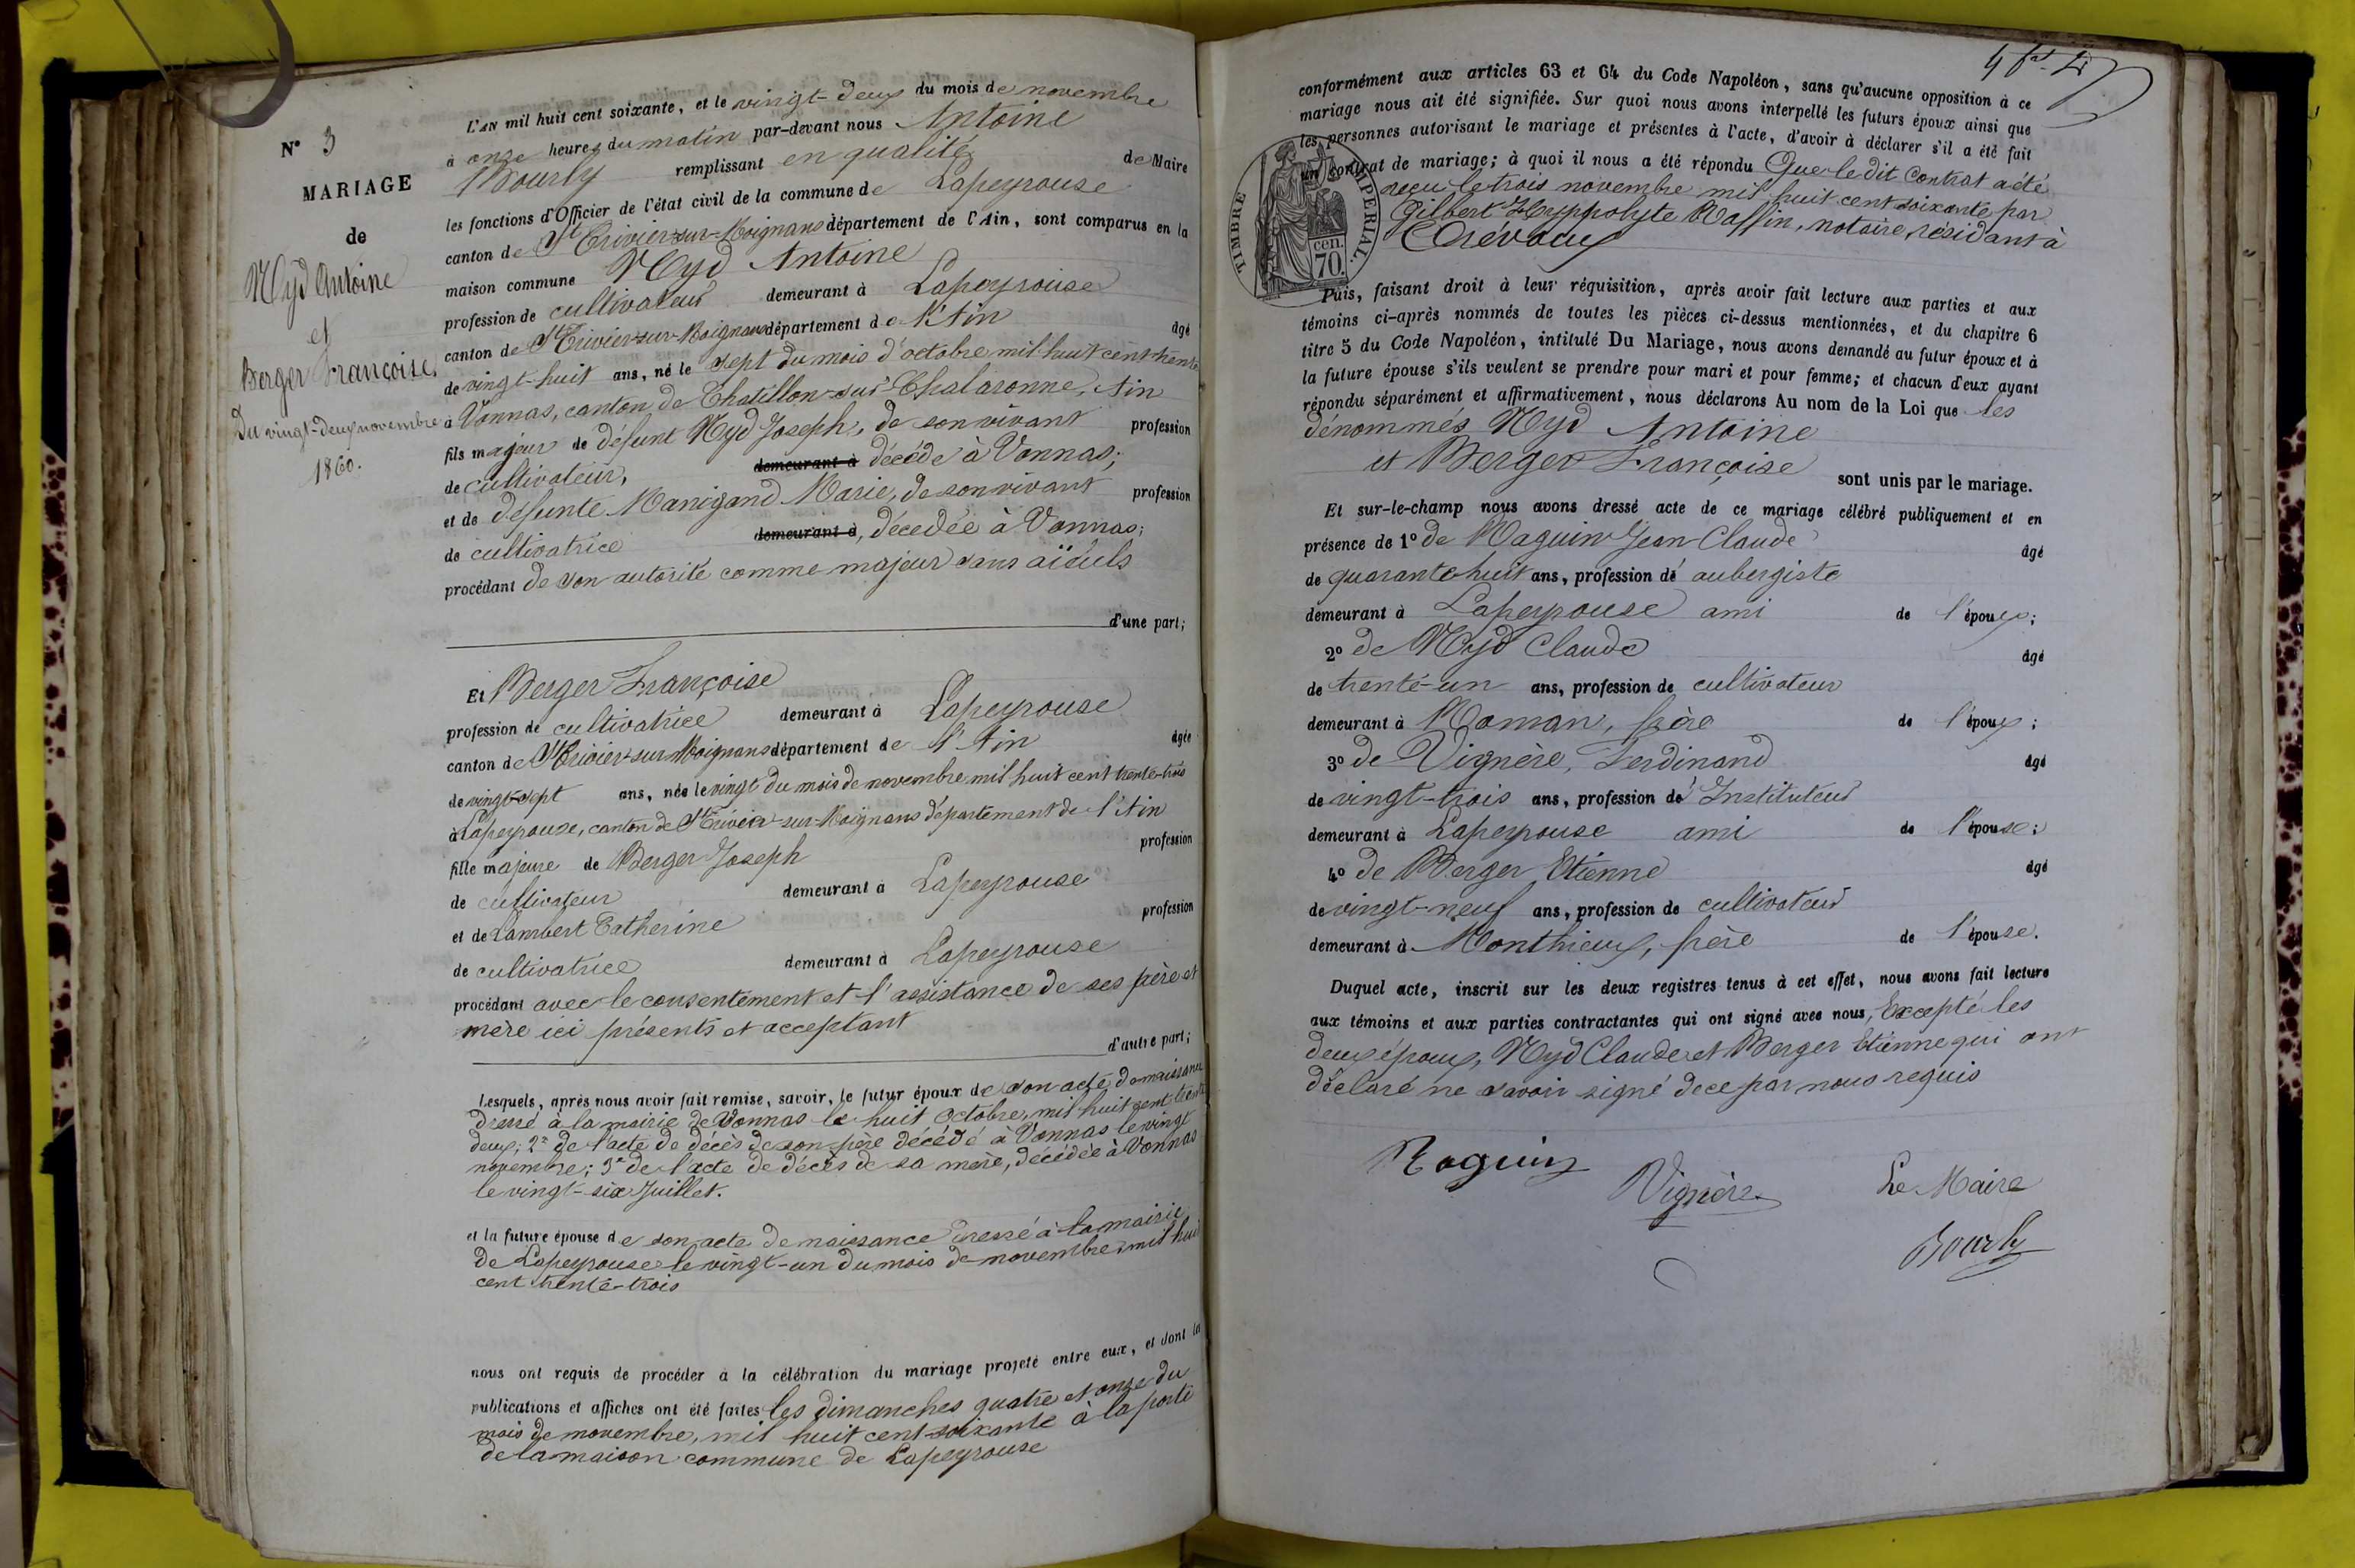 N° 3
MARIAGE
de
Nyd Antoine
et
Berger Françoise,
Du vingt-deux novembre
1860.
L'AN mil huit cent soixante, et le vingt-deux du mois de novembre
à onze heures du matin par-devant nous Antoine
Bourly remplissant en qualité de Maire
les fonctions d'Officier de l'état civil de la commune de Lapeyrouse
canton de St Trivier-sur-Moignans département de l'Ain, sont comparus en la
maison commune Nyd Antoine
profession de cultivateur demeurant à Lapeyrouse
canton de St Trivier-sur-Moignans département de l'Ain âgé
de vingt-huit ans, né le sept du mois d'octobre mil huit cent trente
à Vonnas, canton de Chatillon-sur-Chalaronne, Ain
fils majeur de défunt Nyd Joseph, de son vivant profession
de cultivateur, demeurant à décédé à Vonnas;
et de défunte Manigand Marie, de son vivant profession
de cultivatrice demeurant à, décédée à Vonnas;
procédant de son autorité comme majeur sans aïeuls
d'une part;
Et Berger Françoise
profession de cultivatrice demeurant à Lapeyrouse
canton de St Trivier-sur-Moignans département de l'Ain âgée
de vingt-sept ans, née le vingt du mois de novembre mil huit cent trente-trois
à Lapeyrouse, canton de St Trivier-sur-Moignans département de l'Ain
fille majeure de Berger Joseph profession
de cultivateur demeurant à Lapeyrouse
et de Lambert Catherine profession
de cultivatrice demeurant à Lapeyrouse
procédant avec le consentement et l'assistance de ses père et
mère ici présents et acceptant
d'autre part;
Lesquels, après nous avoir fait remise, savoir, le futur époux de son acte de naissance
dressé à la mairie de Vonnas le huit octobre, mil huit cent trente
deux; 2° de l'acte de décès de son père décédé à Vonnas le vingt
novembre; 3° de l'acte de décès de sa mère, décédée à Vonnas
le vingt-six Juillet.
et la future épouse de son acte de naissance dressé à la mairie
de Lapeyrouse le vingt-un du mois de novembre mil huit
cent trente-trois
nous ont requis de procéder à la célébration du mariage projeté entre eux, et dont les
publications et affiches ont été faites les dimanches quatre et onze du
mois de novembre, mil huit cent soixante à la porte
de la maison commune de Lapeyrouse
conformément aux articles 63 et 64 du Code Napoléon, sans qu'aucune opposition à ce
mariage nous ait été signifiée. Sur quoi nous avons interpellé les futurs époux ainsi que
les personnes autorisant le mariage et présentes à l'acte, d'avoir à déclarer s'il a été fait
un contrat de mariage; à quoi il nous a été répondu Que le dit Contrat a été
reçu le trois novembre mil huit cent soixante par
Gilbert Hyppolyte Raffin, notaire, résidant à
Trévoux
TIMBRE IMPERIAL.
cen.
70.
Puis, faisant droit à leur réquisition, après avoir fait lecture aux parties et aux
témoins ci-après nommés de toutes les pièces ci-dessus mentionnées, et du chapitre 6
titre 5 du Code Napoléon, intitulé Du Mariage, nous avons demandé au futur époux et à
la future épouse s'ils veulent se prendre pour mari et pour femme; et chacun d'eux ayant
répondu séparément et affirmativement, nous déclarons Au nom de la Loi que les
dénommés Nyd Antoine
et Berger Françoise sont unis par le mariage.
Et sur-le-champ nous avons dressé acte de ce mariage célébré publiquement et en
présence de 1° de Raguin Jean Claude âgé
de quarante huit ans, profession de aubergiste
demeurant à Lapeyrouse ami de l'époux;
2° de Nyd Claude âgé
de trente-un ans, profession de cultivateur
demeurant à Roman, frère de l'époux;
3° de Vignère, Ferdinand âgé
de vingt-trois ans, profession de Instituteur
demeurant à Lapeyrouse ami de l'épouse;
4° de Berger Etienne âgé
de vingt-neuf ans, profession de cultivateur
demeurant à Monthieux, frère de l'épouse.
Duquel acte, inscrit sur les deux registres tenus à cet effet, nous avons fait lecture
aux témoins et aux parties contractantes qui ont signé avec nous, Excepté les
deux époux, Nyd Claude et Berger Etienne qui ont
déclaré ne savoir signé de ce par nous requis
Raguin
Vignère
Le Maire
Bourly